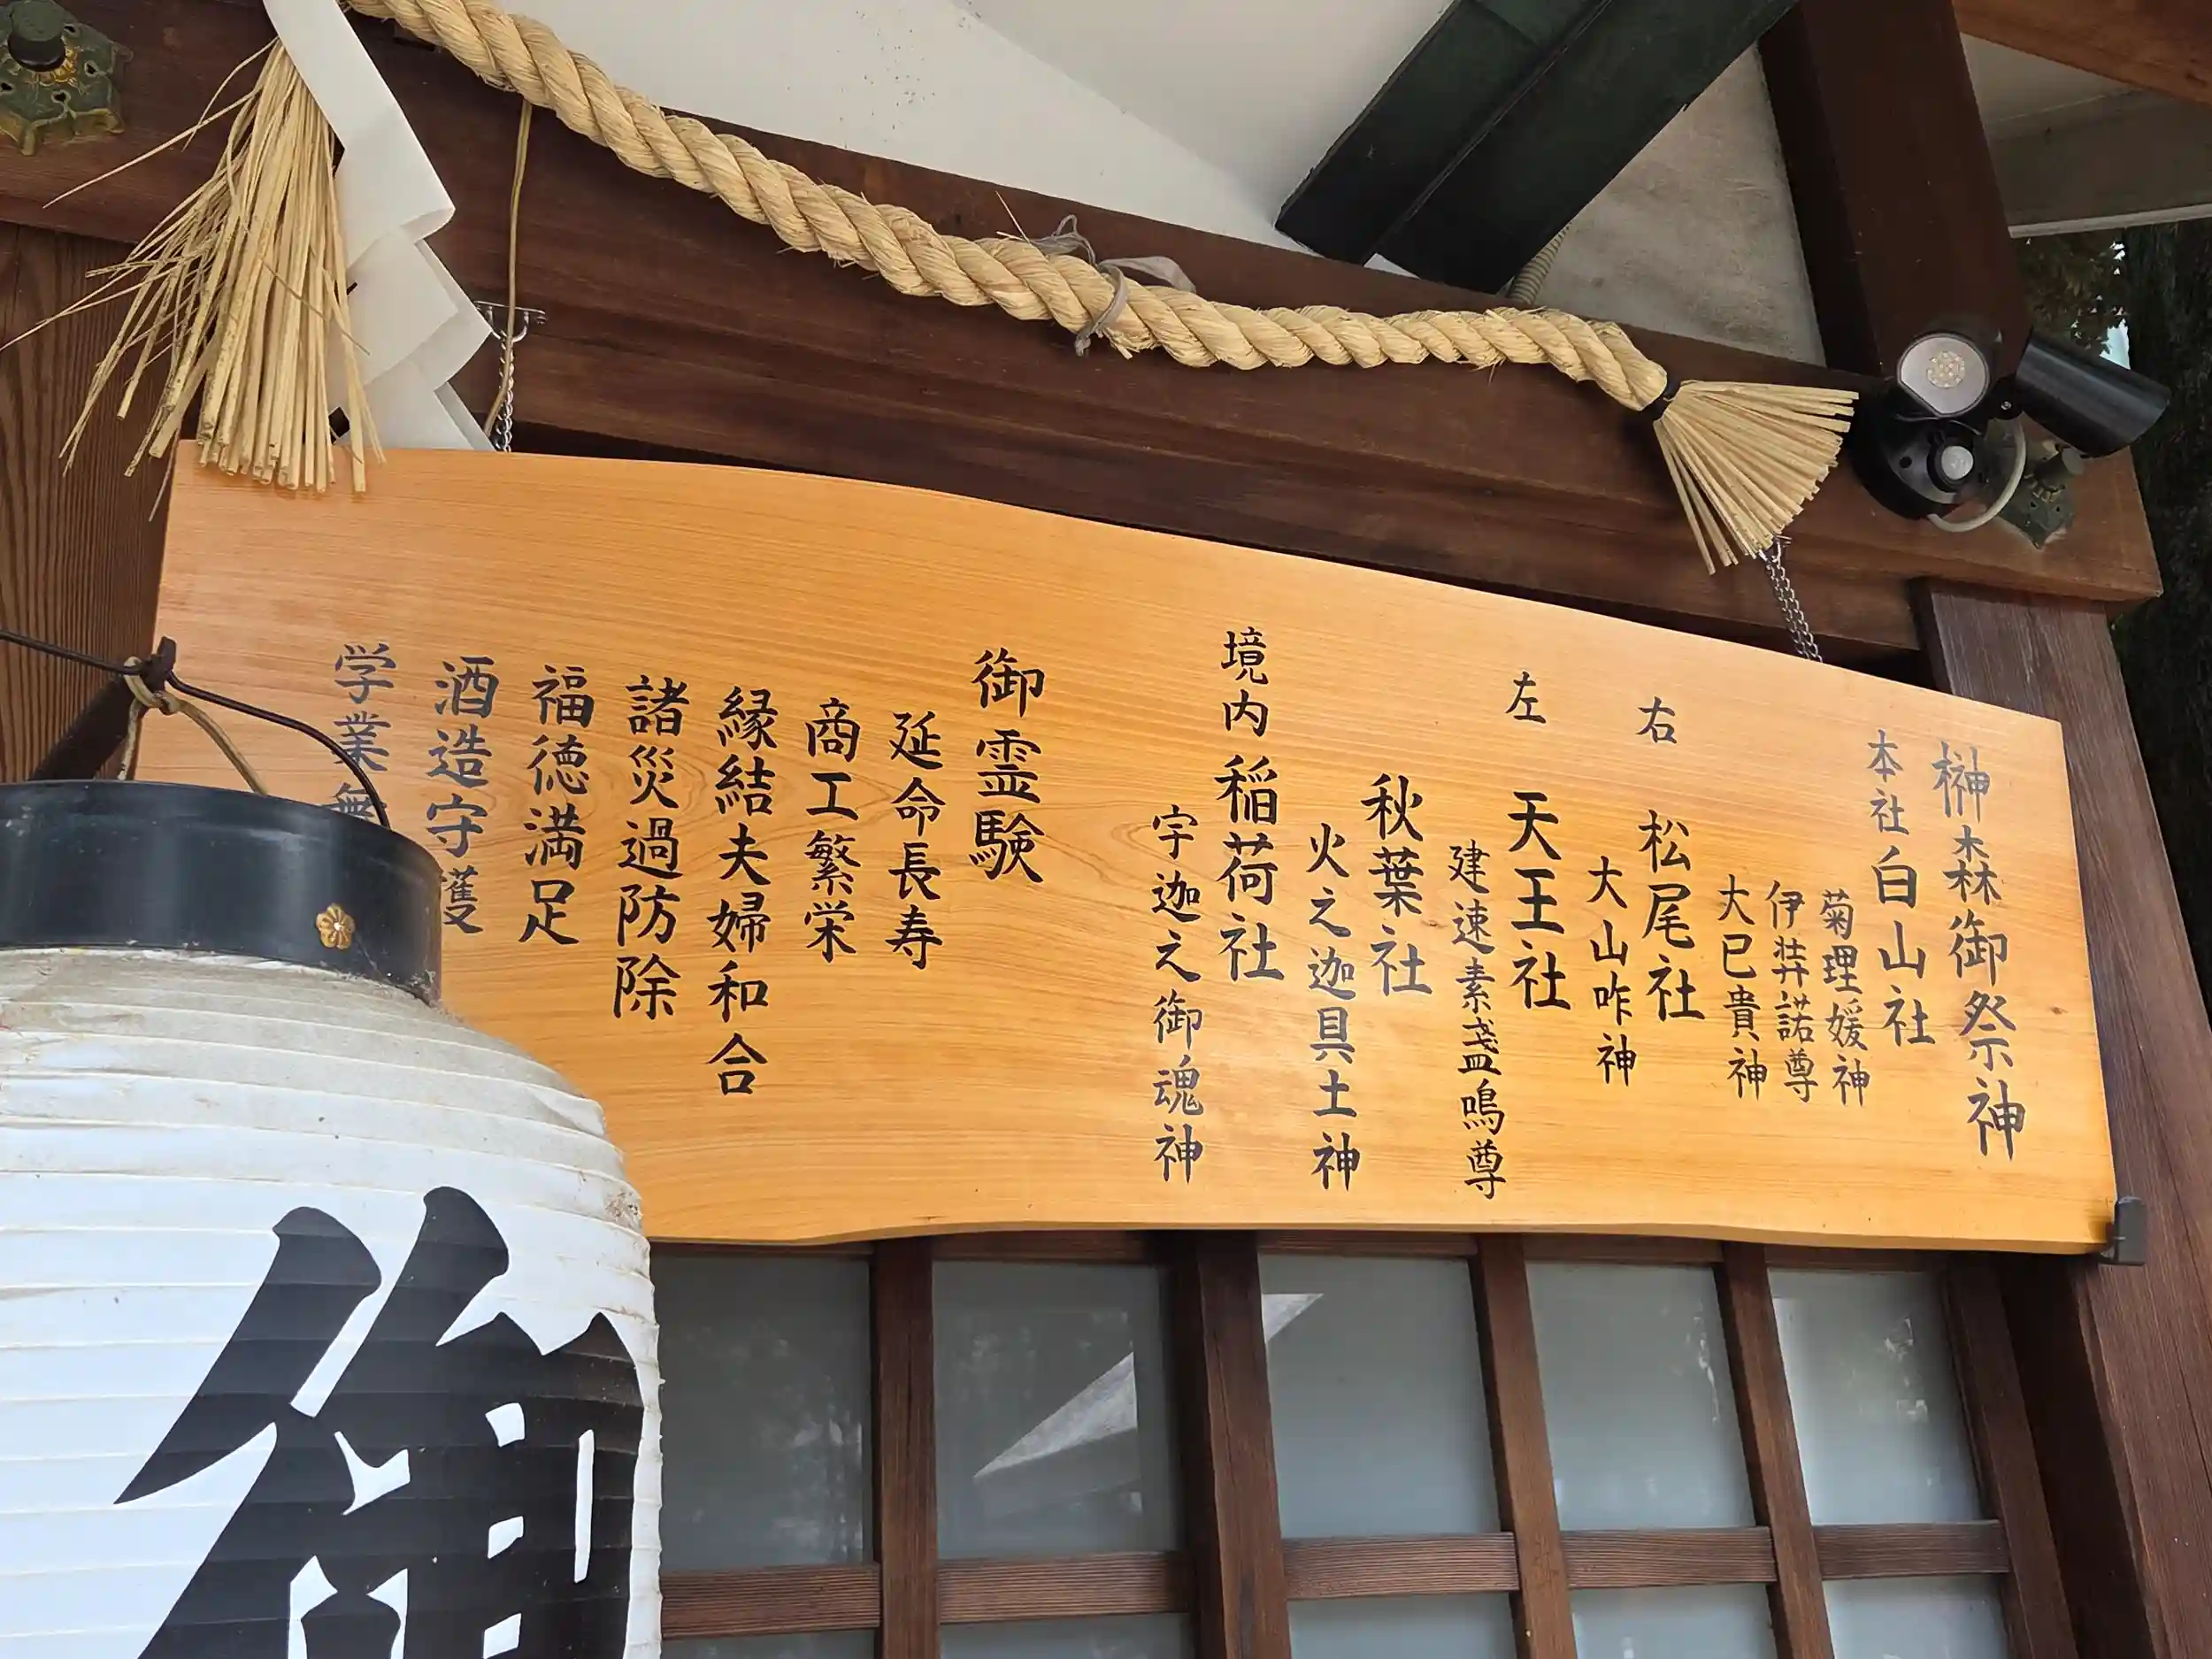 榊森御祭神
本社 白山社
菊理媛神
伊弉諾尊
大巳貴神
右 松尾社
大山咋神
左 天王社
建速素盞嗚尊
秋葉社
火之迦具土神
境内 稲荷社
宇迦之御魂神
御霊験
延命長寿
商工繁栄
縁結夫婦和合
諸災過防除
福徳満足
酒造守護
学業
御